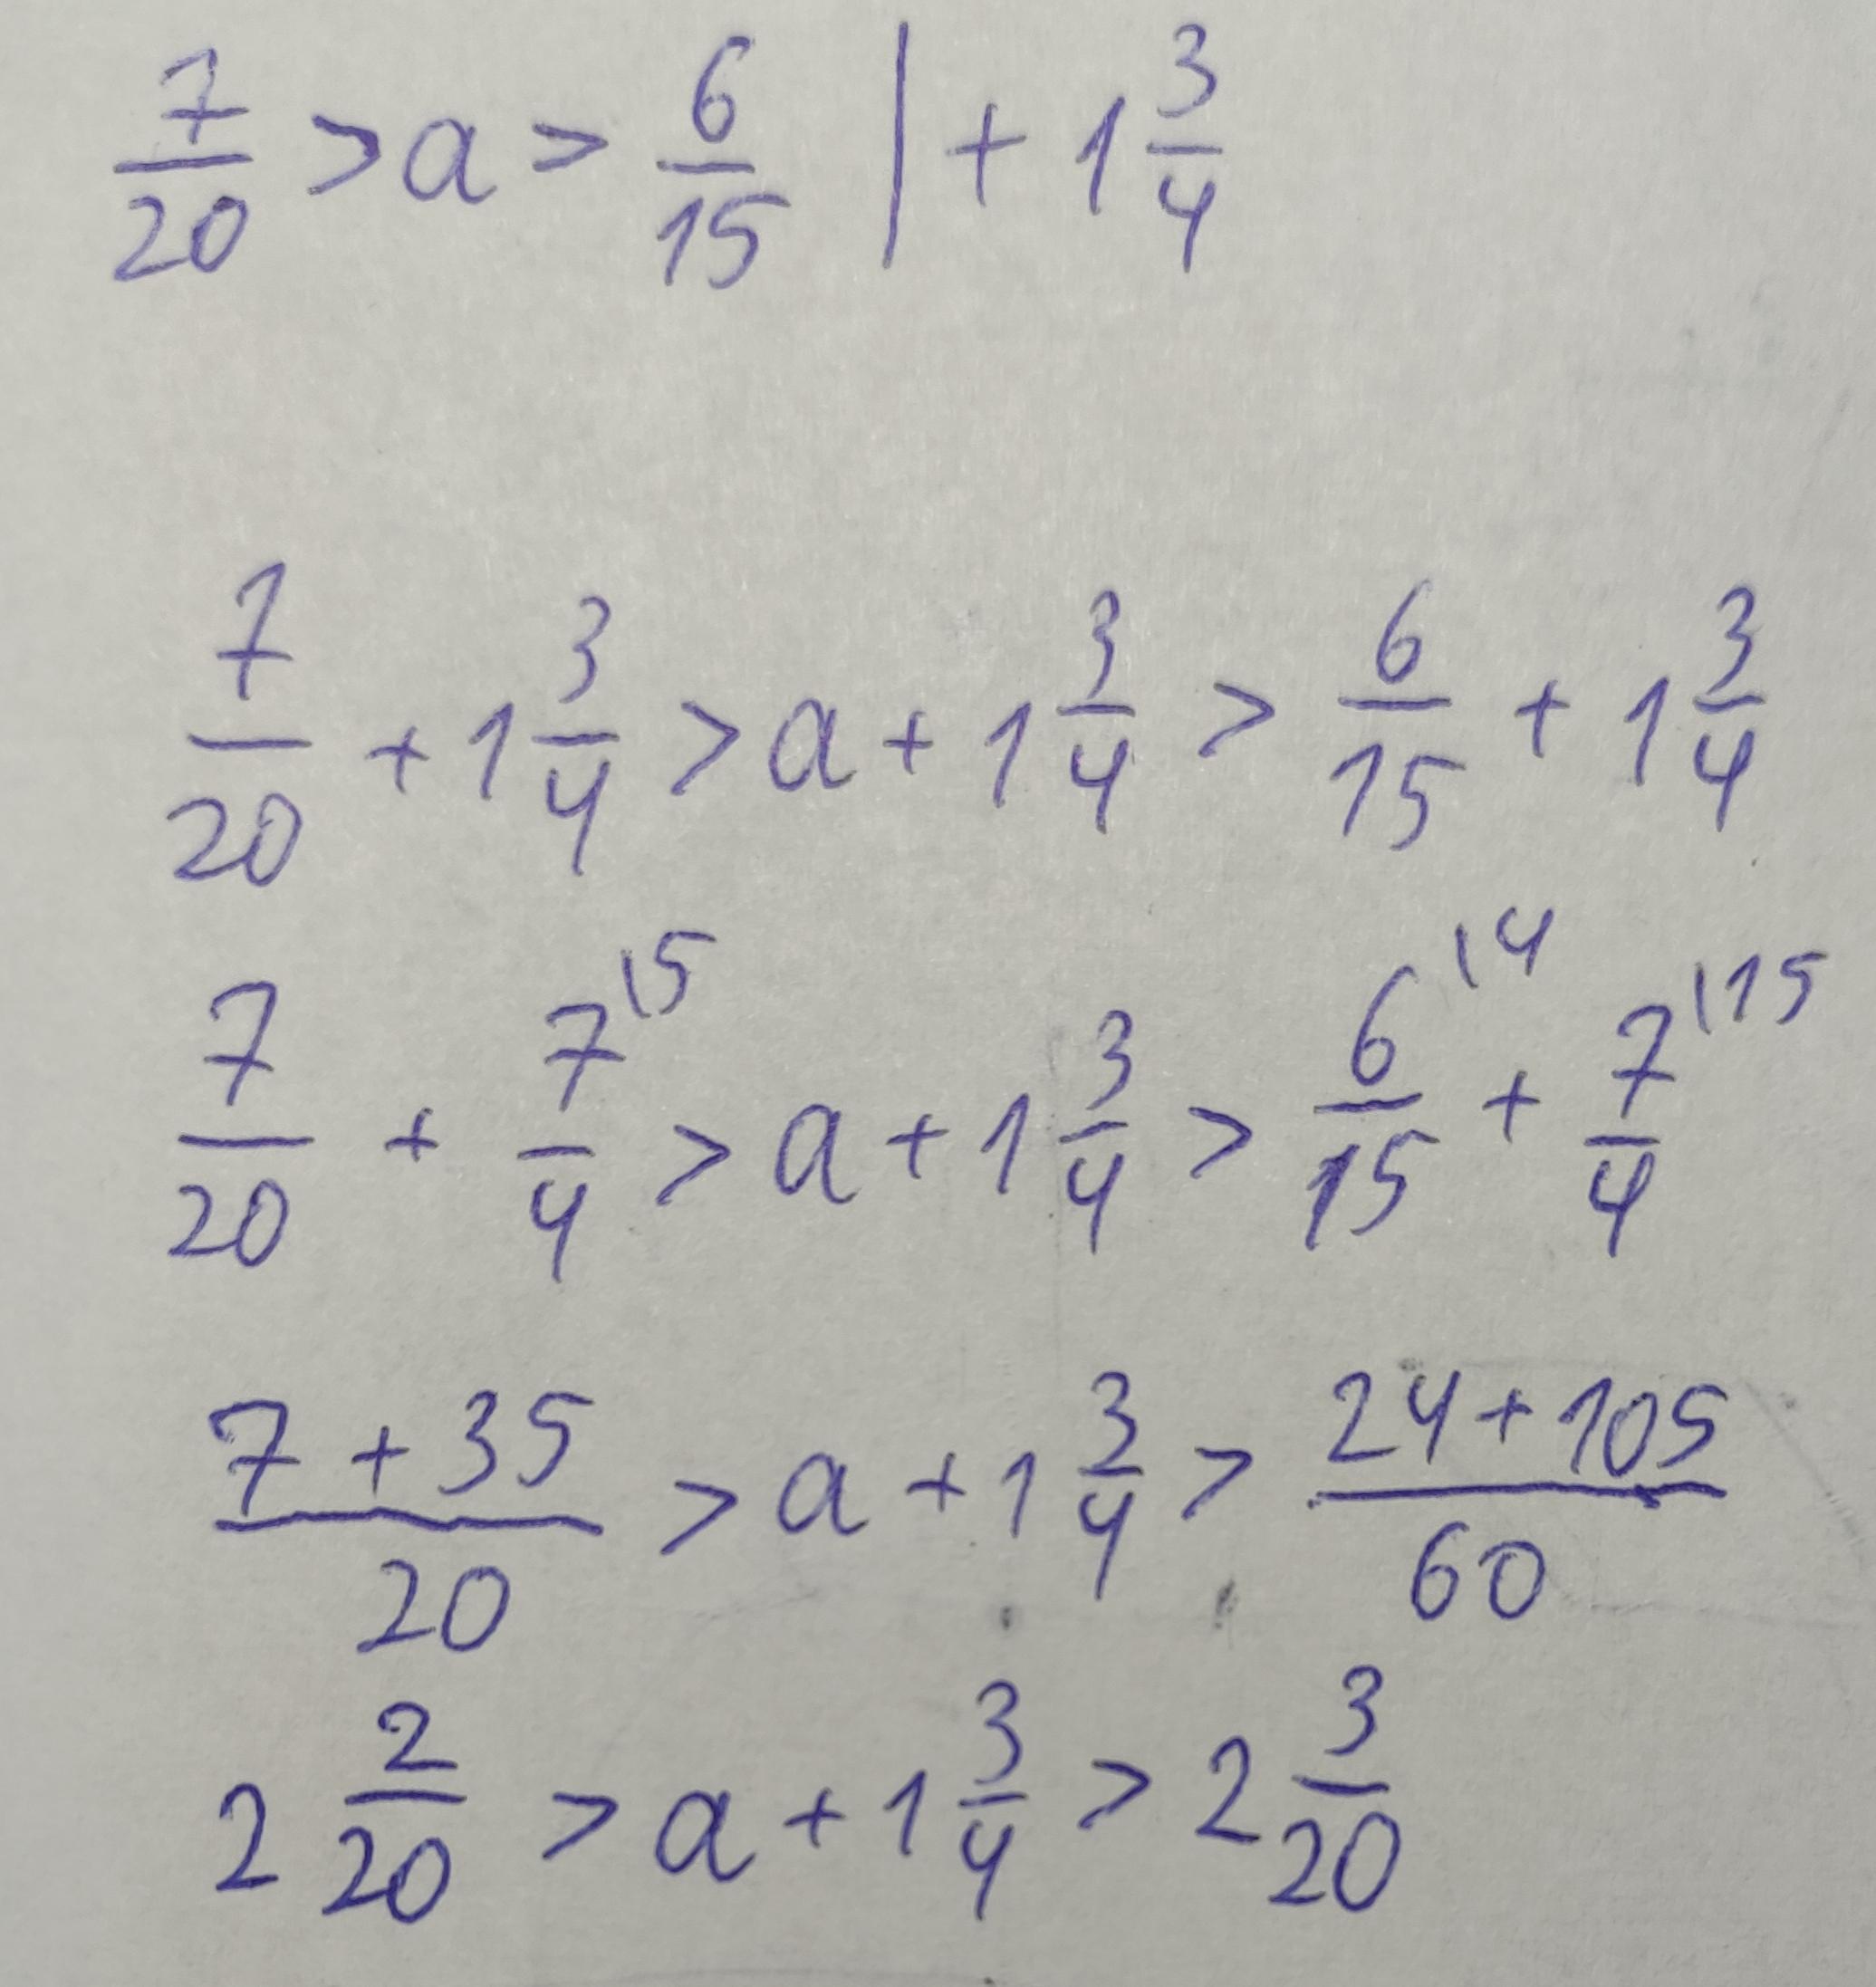 7/20 > a > 6/15 | + 1 3/4
7/20 + 1 3/4 > a + 1 3/4 > 6/15 + 1 3/4
7/20 + 7\5/4 > a + 1 3/4 > 6\4/15 + 7\15/4
7 + 35/20 > a + 1 3/4 > 24 + 105/60
2 2/20 > a + 1 3/4 > 2 3/20